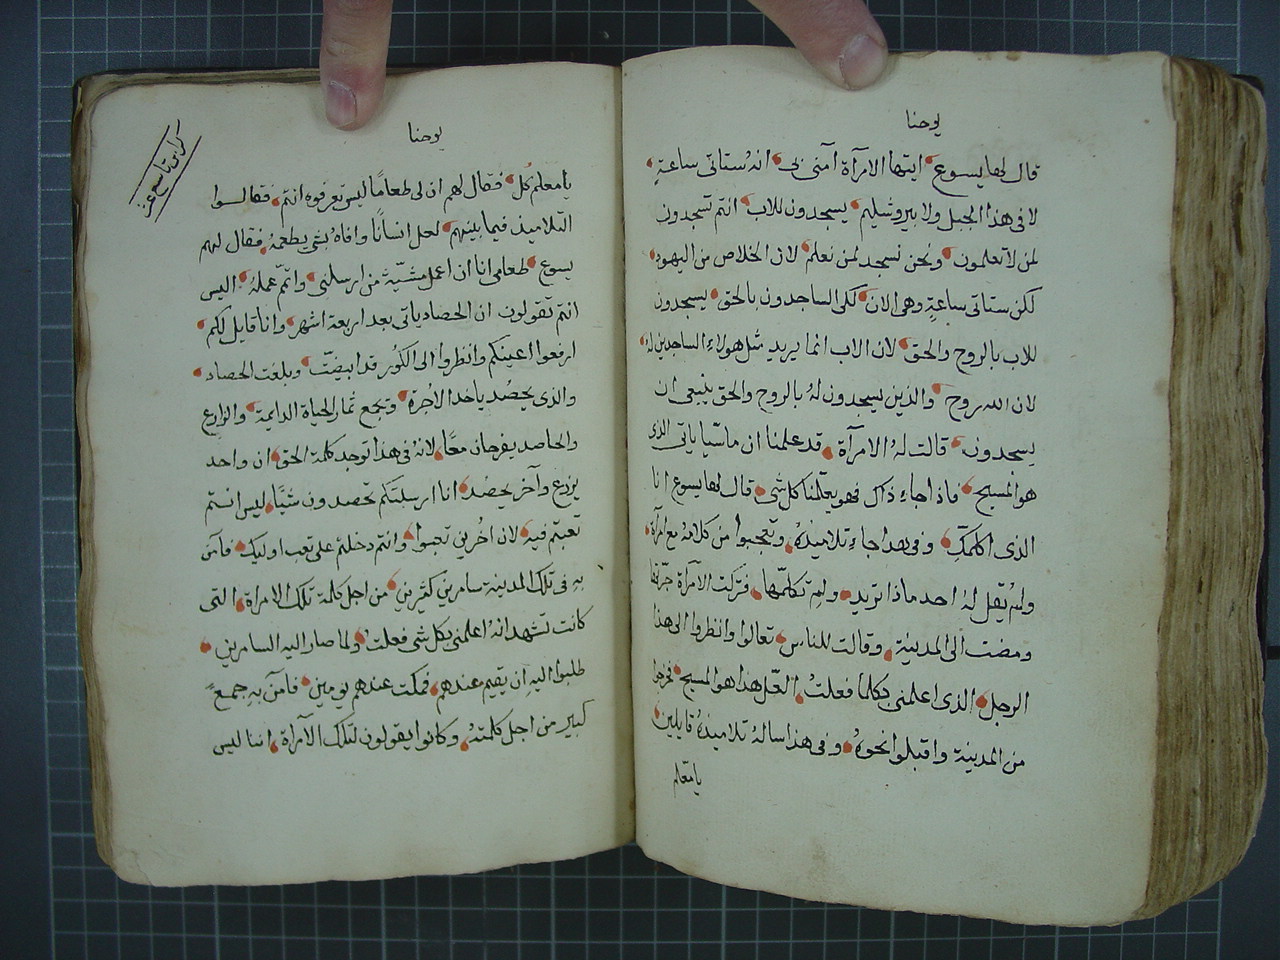 يوحنا
قال لها يسوع ايتها الامرآة آمنى بى انه ستاتى ساعةٍ
لا فى هذا الجبل ولا بيروشليم يسجدون للاب انتم تسجدون
لمن لا تعلمون ونحن نسجد لمن نعلم لان الخلاص من اليهود
لكن ستاتى ساعةٍ وهى الان لكى الساجدون بالحق يسجدون
للاب بالروح والحق لان الاب انما يريد مثل هولاءِ الساجدين له
لان الله روح والذين يسجدون لهُ بالروح والحق ينبغى ان
يسجدون قالت له الامرآة قد علمنا ان ماشيا ياتى الذى
هو المسيح فاذا جاءِ ذاك فهو يعلمنا كل شى قال لها يسوع انا
الذى اكلمكِ وفى هذا جاءِ تلاميذهُ وتعجبوا من كلامه مع امرآة
ولم يقل لهُ احد ماذا تريد ولم تكلمها فتركت الامرآة جرتها
ومضت الى المدينة وقالت للناس تعالوا وانظروا الى هذا
الرجل الذى اعلمنى بكلما فعلتُ العّل هذا هو المسيح فخرجوا
من المدينة واقبلوا نحوهُ وفى هذا سالهُ تلاميذهُ قايلين
يا معلم
يوحنا
يا معلم كُل فقال لهم ان لى طعامًا ليس تعرفوه انتم فقالوا
التلاميذ فيما بينهم لعل انسانًا وافاهُ بشى يطعمهُ فقال لهم
يسوع طعامى انا ان اعمل مشيّة من ارسلنى واتمّ عملهُ اليس
انتم تقولون ان الحصاد ياتى بعد اربعة اشهر وانا قايل لكم
ارفعوا اعينكم وانظروا الى الكُور قد ابيضّت وبلغت الحصاد
والذى يحصُد ياخذ الاُجرة ويجمع ثمار الحياة الدايمة والزارع
والحاصد يفرحان معًا لانهُ فى هذا توجد كلمة الحق ان واحد
يزرع وآخر يحصُد انا ارسلتكم تحصدون شيًا ليس انتم
تعبتم فيه لان اخُرين تعبوا وانتم دخلتم على تعب اوليك فآمن
بهِ فى تلك المدينة سامرين كثيرين من اجل كلمة تلك الامراة التى
كانت تشهد انهُ اعلمنى بكل شى فعلتُ ولما صار اليه السامرين
طلبوا اليهِ ان يقيم عندهم فمكث عندهم يومين فامن بهِ جمع
كبير من اجل كلمتهُ وكانوا يقولون لتلك الامرآة اننا ليس